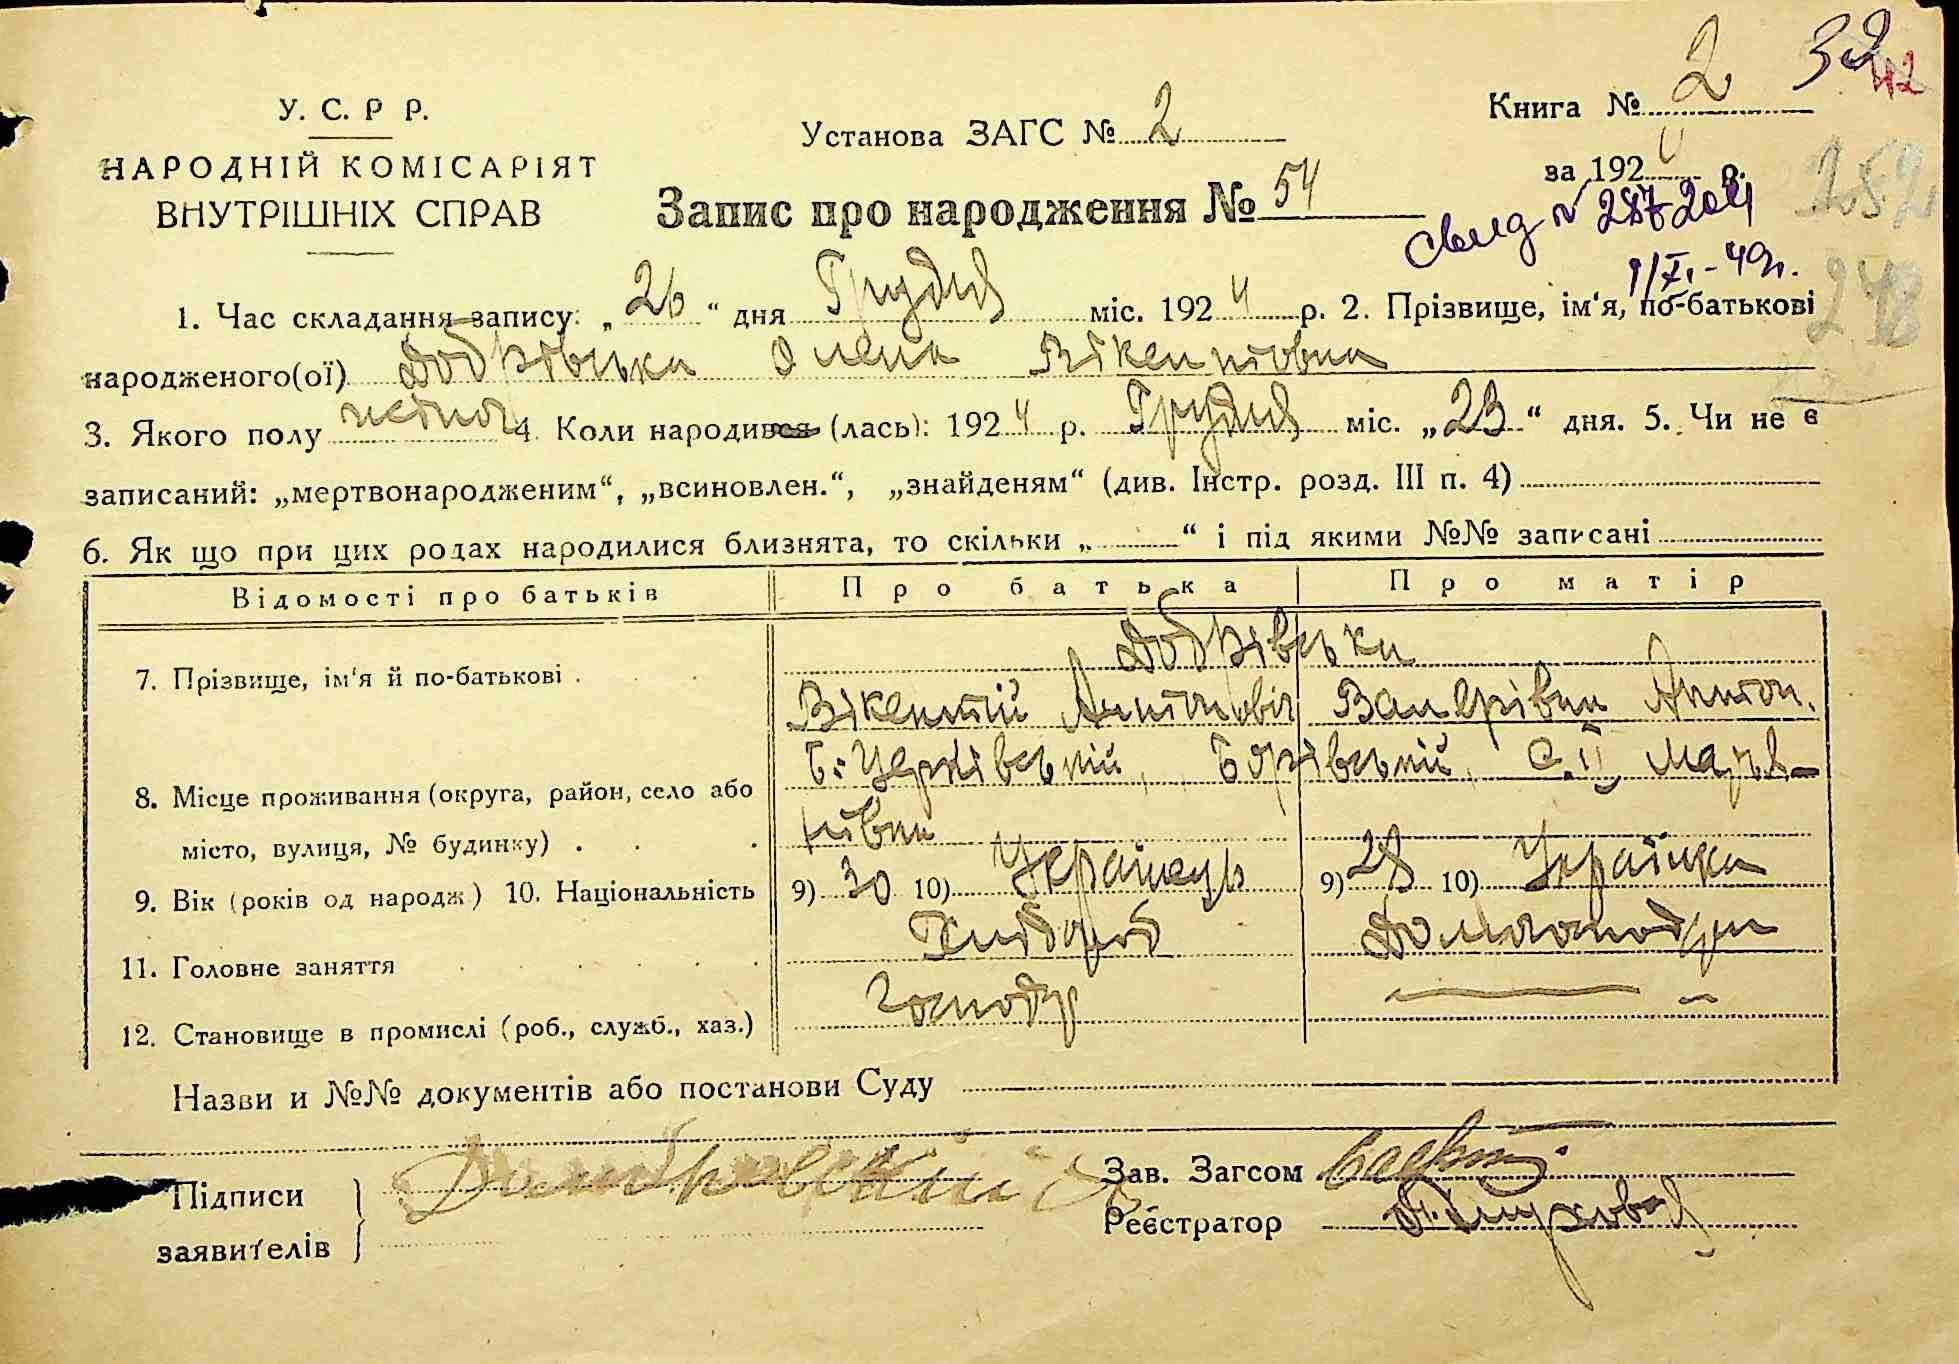 32
42
Книга № 2
У. С. Р Р.
Установа ЗАГС № 2
НАРОДНІЙ КОМІСАРІЯТ
за 192 р.
252
ВНУТРІШНІХ СПРАВ
Запис про народження № 54
свид № 287204
1/XI.-49г.
248
1. Час складання запису: „26“ дня Грудня міс. 1924 р. 2. Прізвище, ім'я, по-батькові
народженого(ої) Добрівська Олена Вікентіовна
3. Якого полу жіночо 4. Коли народився (лась): 1924 р. Грудня міс. „23“ дня. 5. Чи не є
записаний: „мертвонародженим“, „всиновлен.“, „знайденям“ (див. Інстр. розд. III п. 4)
6. Як що при цих родах народилися близнята, то скільки „ “ і під якими №№ записані
Відомості про батьків Про батька Про матір
7. Прізвище, ім'я й по-батькові Добрівська
Вікентій Антоновіч Валерівна Антон.
8. Місце проживання (округа, район, село або Б-Церківський,
місто, вулиця, № будинку)
9. Вік (років од народж) 10. Національність 9) 30 10) Українець 9) 28 10) Українка
11. Головне заняття Хлібороб Домогосподрн
12. Становище в промислі (роб., служб., хаз.) Господр
Назви и №№ документів або постанови Суду
Підписи
заявителів
Домбровский
Зав. Загсом
Реєстратор